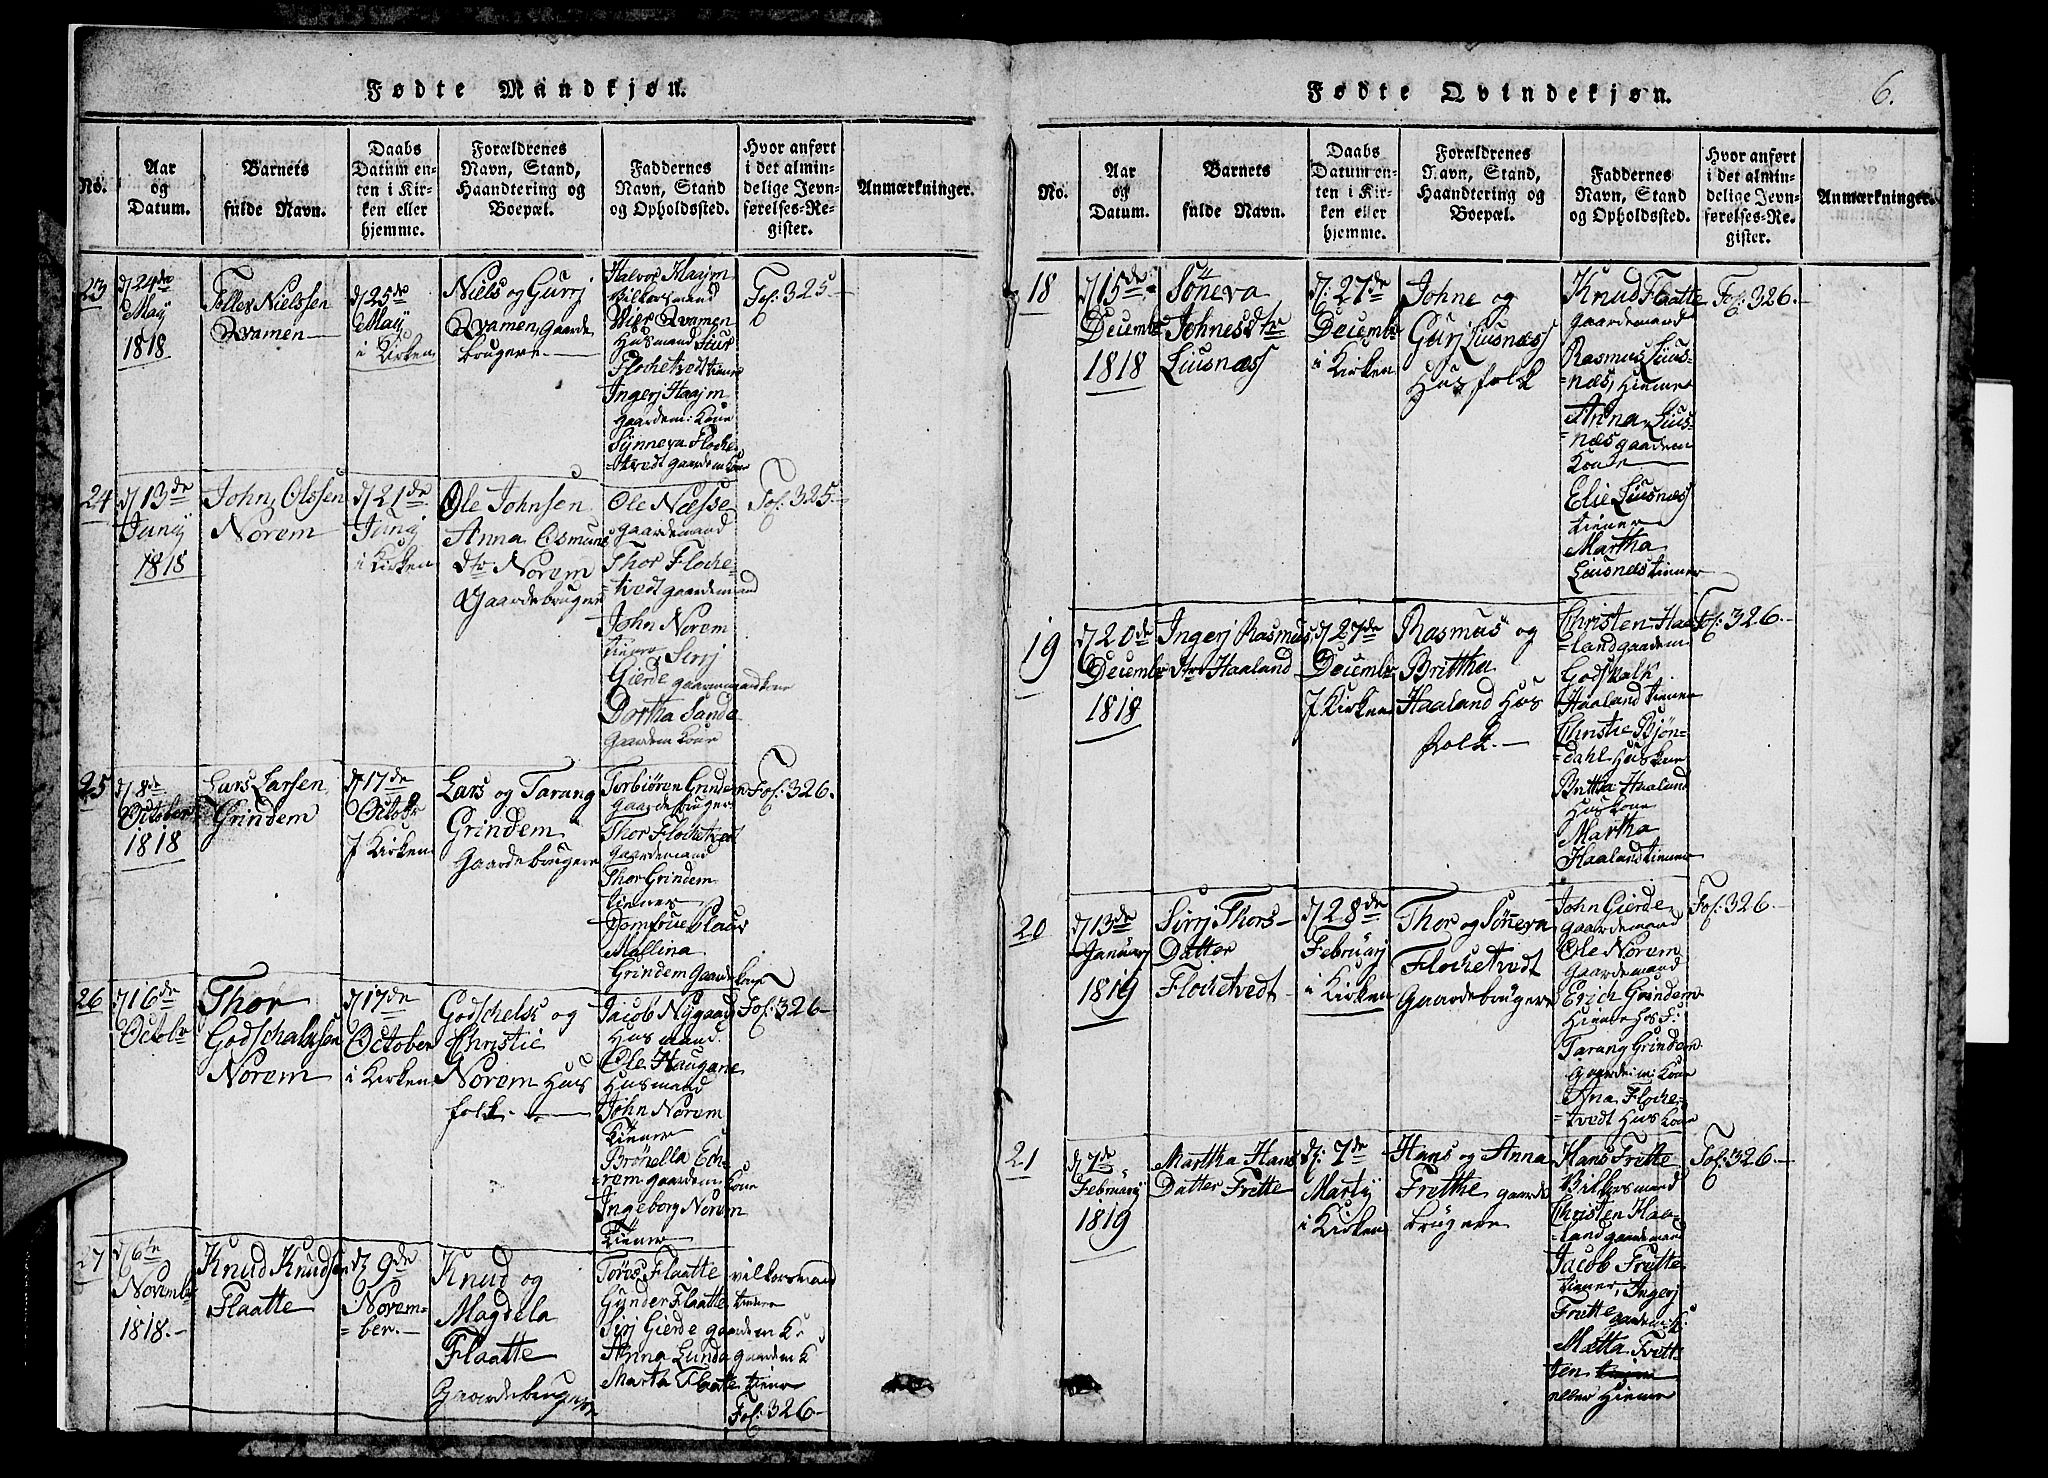 Fødte Mandkjøn.
No.
Aar
og
Datum.
Barnets
fulde Navn.
Daabs
Datum en-
ten i Kir-
ken eller
hjemme.
Forældrenes
Navn, Stand,
Haandtering og
Boepæl.
Faddernes
Navn, Stand
og Opholdssted.
Hvor anført
i det almin-
delige Jevn-
førelses-Re-
gister.
Anmærkninger.
23
d 24de
May
1818
Nielsen
Qvamen
d 25de
May
i Kirken
Niels og Gurj
Qvamen gaarde
brugere
Halvor Haajm
Vilkorsmand
Qvamen
Husmand
Flochetvedt tiener
Ingerj Haajm
gaardem: Kone
Sÿnneva Floche-
=tvedt gaardem Kone
Fol: 325
24
d 13de
Junij
1818
John Olssen
Norem
d 21de
Junij
i Kirken
Ole Johnsen
Anna Osmuns
dtr Norem
Gaardebrugere
Ole Næsse
gaardemand
Thor Floche-
=tvedt gaardemand
John Norem
tiener Sirj
Gierde gaaremandkone
Bortha Sande
Gaardem Kone
Fol: 325.
25
d 8de
October
1818
Lars Larsen
Grindem
d 17de
Octobr
J Kirken
Lars og Tarang
Grindem
Gaardebrugere
Torbiören Grindem
Gaardebruger
Thor Flochetvedt
Gaardemand
Thor Grindem
tiener
Jomfrue
Mallina
Grindem Gaardkone
Fol: 326.
26
d 16de
Octobr
Thor
Godschalksen
Norem
d 17de
October
i Kirken
Godschelk og
Christie
Norem Hus
folk.
Jacob Nÿgaard
Husmand.
Ole Haugane
Husmand
John Norem
tiener
Brönella Ech-
=rem gaardem Kone
Ingeborg Norem
tiener
Fol: 326
27
d 6te
Novembr
1818.
Knud Knudsen
Flaatte
d 9de
Novem-
=ber.
Knud og
Magdela
Flaatte
Gaardebrugere
Töres Flaatte vilkorsmand
Gunder Flaatte tiener
Sirj Gierde gaardem K
Anna Lunda gaardem K
Marta Flaatte tiener
Fol: 326
Fødte Qvindekjøn.
6.
No.
Aar
og
Datum.
Barnets
fulde Navn.
Daabs
Datum en-
ten i Kir-
ken eller
hjemme.
Forældrenes
Navn, Stand,
Haandtering og
Boepæl.
Faddernes
Navn, Stand
og Opholdssted.
Hvor anført
i det almin-
delige Jevn-
førelses-Re-
gister.
Anmærkninger.
18
d 15de
Decembr
1818
Söneva
Johnesdtr
Liusnæss
d: 27de
Decembr
i Kirken
Johne og
Gurj Liusnæss
Husfolk
Knud Flaatte
Gaardemand
Rasmus Lius-
=næs,
Anna Lius-
=næs gaardem
Kone
Elie Liusnæss
tiener
Martha
Liusnæs tiener
Fol: 326.
19
d 20de
Decembr
1818
Ingerj Rasmus
dtr Haaland
d 27de
Decembr
J Kirken
Rasmus og
Brittha
Haaland Hus
folk.
Christen Haa-
=land gaardem
Godskalk
Haaland tiener
Christie Bjön-
dahl Huskone
Brittha Haaland
Huskone
Martha
Haaland tiener
Fol: 326.
20
d 13de
Januarj
1819
Sirrj Thors-
Datter
Flochetvedt
d 28de
Februarj
i Kirken
Thor og Sönneva
Flochetvedt
Gaardebrugere
John Gierde
gaardemand
Ole Norem
Gaardemand
Erich Grindem
Tarang Grindem
Gaardem: Kone
Ana Floche-
=tvedt Huskone
Fol: 326
21
d 7de
Februarÿ
1819
Marttha Hans
Datter Frette
d: 7de
Martÿ
i Kirken
Hans og Anna
Fretthe gaarde
brugere
Hans Frette
Vilkorsmand
Christen Haa-
=land gaardemand
Jacob Frette
tiener, Ingerj
Frette gaardem: K:
Mattta Frett-
ten
Fol: 326